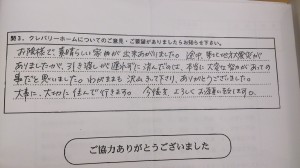 問3. クレバリーホームについてのご意見・ご要望がありましたらお聞かせ下さい。
お陰様で、素晴らしい家が出来あがりました。途中、東北地方大震災が
ありましたが、引き渡しが遅れずに済んだのは、本当に大変な努力があっての
事だと思いました。わがままも沢山きいて下さり、ありがとうございました。
大事に、大切に住んで行きます。今後も、よろしくお願い致します。
ご協力ありがとうございました